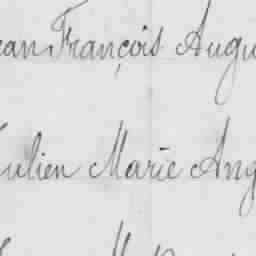 ean François Augu
Julien Marie Ang